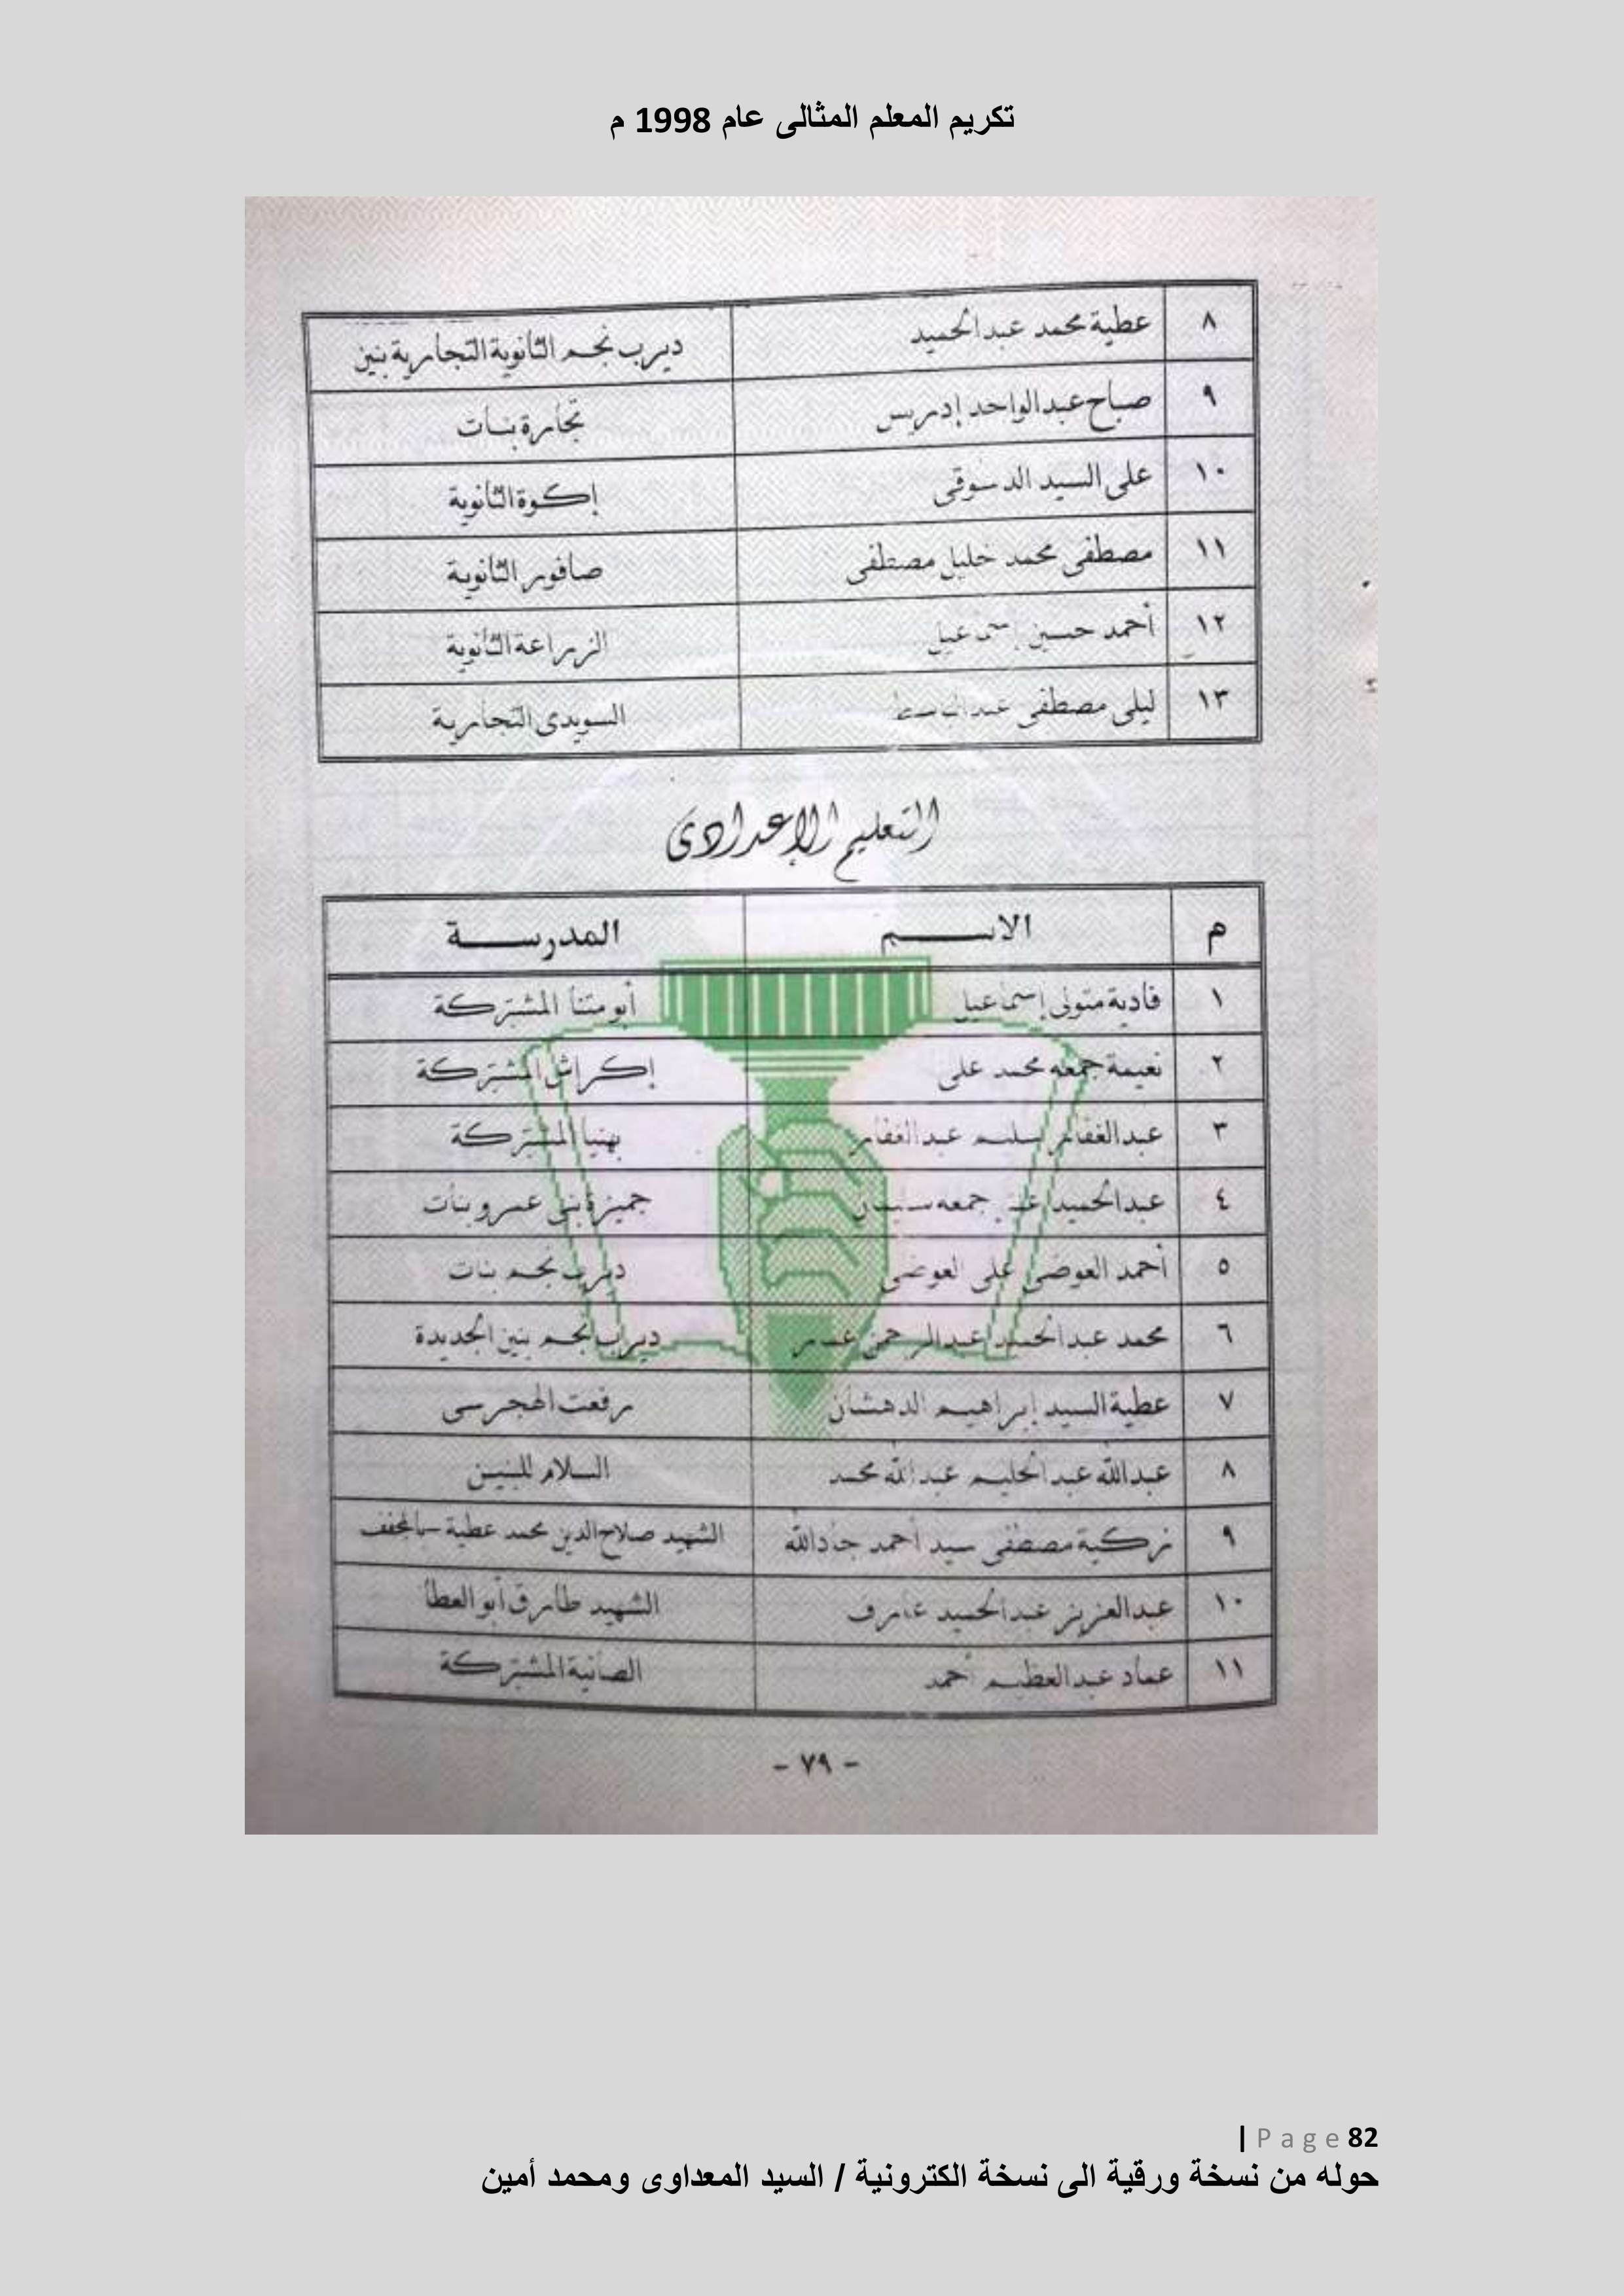 تكريم المعلم المثالى عام 1998 م
٨ عطية محمد عبد الحميد ديرب نجم الثانوية التجارية بنين
٩ صباح عبد الواحد إدريس تجارة بنات
١٠ على السيد الدسوقى إكوة الثانوية
١١ مصطفى محمد خليل مصطفى صافور الثانوية
١٢ أحمد حسين إسماعيل الزراعة الثانوية
١٣ ليلى مصطفى عبد الباسط السويدى التجارية
التعليم الإعدادى
م الاسم المدرسة
١ فادية متولى إسماعيل أبو متنا المشتركة
٢ نعيمة جمعه محمد على إكراش المشتركة
٣ عبد الغفار سليم عبد الغفار بهنيا المشتركة
٤ عبد الحميد جمعه سليمان جميزة بنى عمرو بنات
٥ أحمد العوضى على العوضى ديرب نجم بنات
٦ محمد عبد الحميد عبد الرحمن ديرب نجم بنين الجديدة
٧ عطية السيد إبراهيم الدهشان رفعت الهجرسى
٨ عبد الله عبد الحليم عبد الله محمد السلام للبنين
٩ زكية مصطفى سيد أحمد جاد الله الشهيد صلاح الدين محمد عطية
١٠ عبد العزيز عبد الحميد عارف الشهيد طارق أبو العطا
١١ عماد عبد العظيم أحمد الصانية المشتركة
- ٧٩ -
| Page 82
حوله من نسخة ورقية الى نسخة الكترونية / السيد المعداوى ومحمد أمين